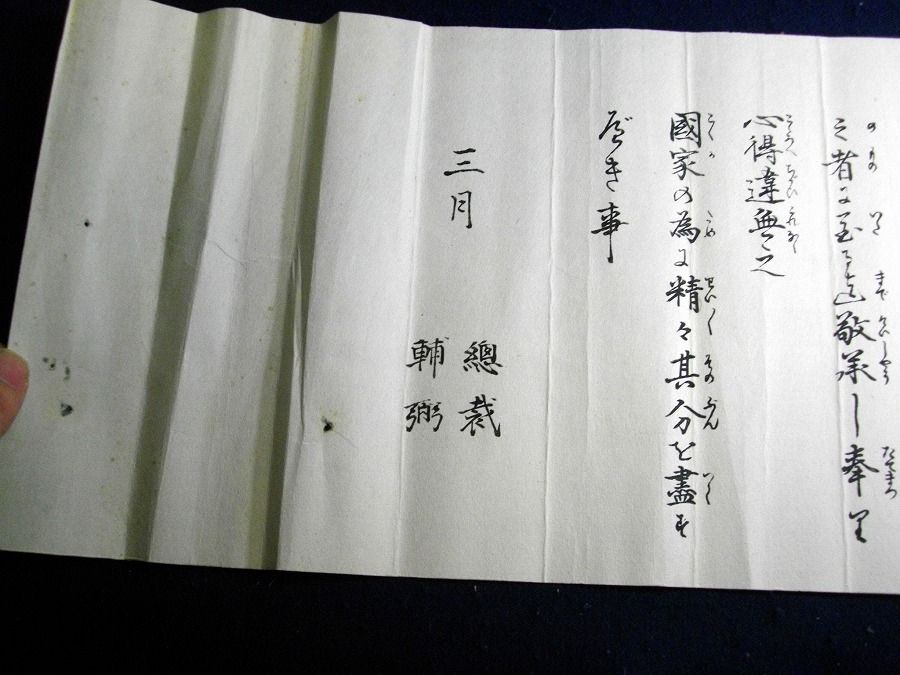 之者に至る迄敬承し奉里
心得違無之
國家の為に精々其分を盡す
べき事
三月
總裁
輔弼